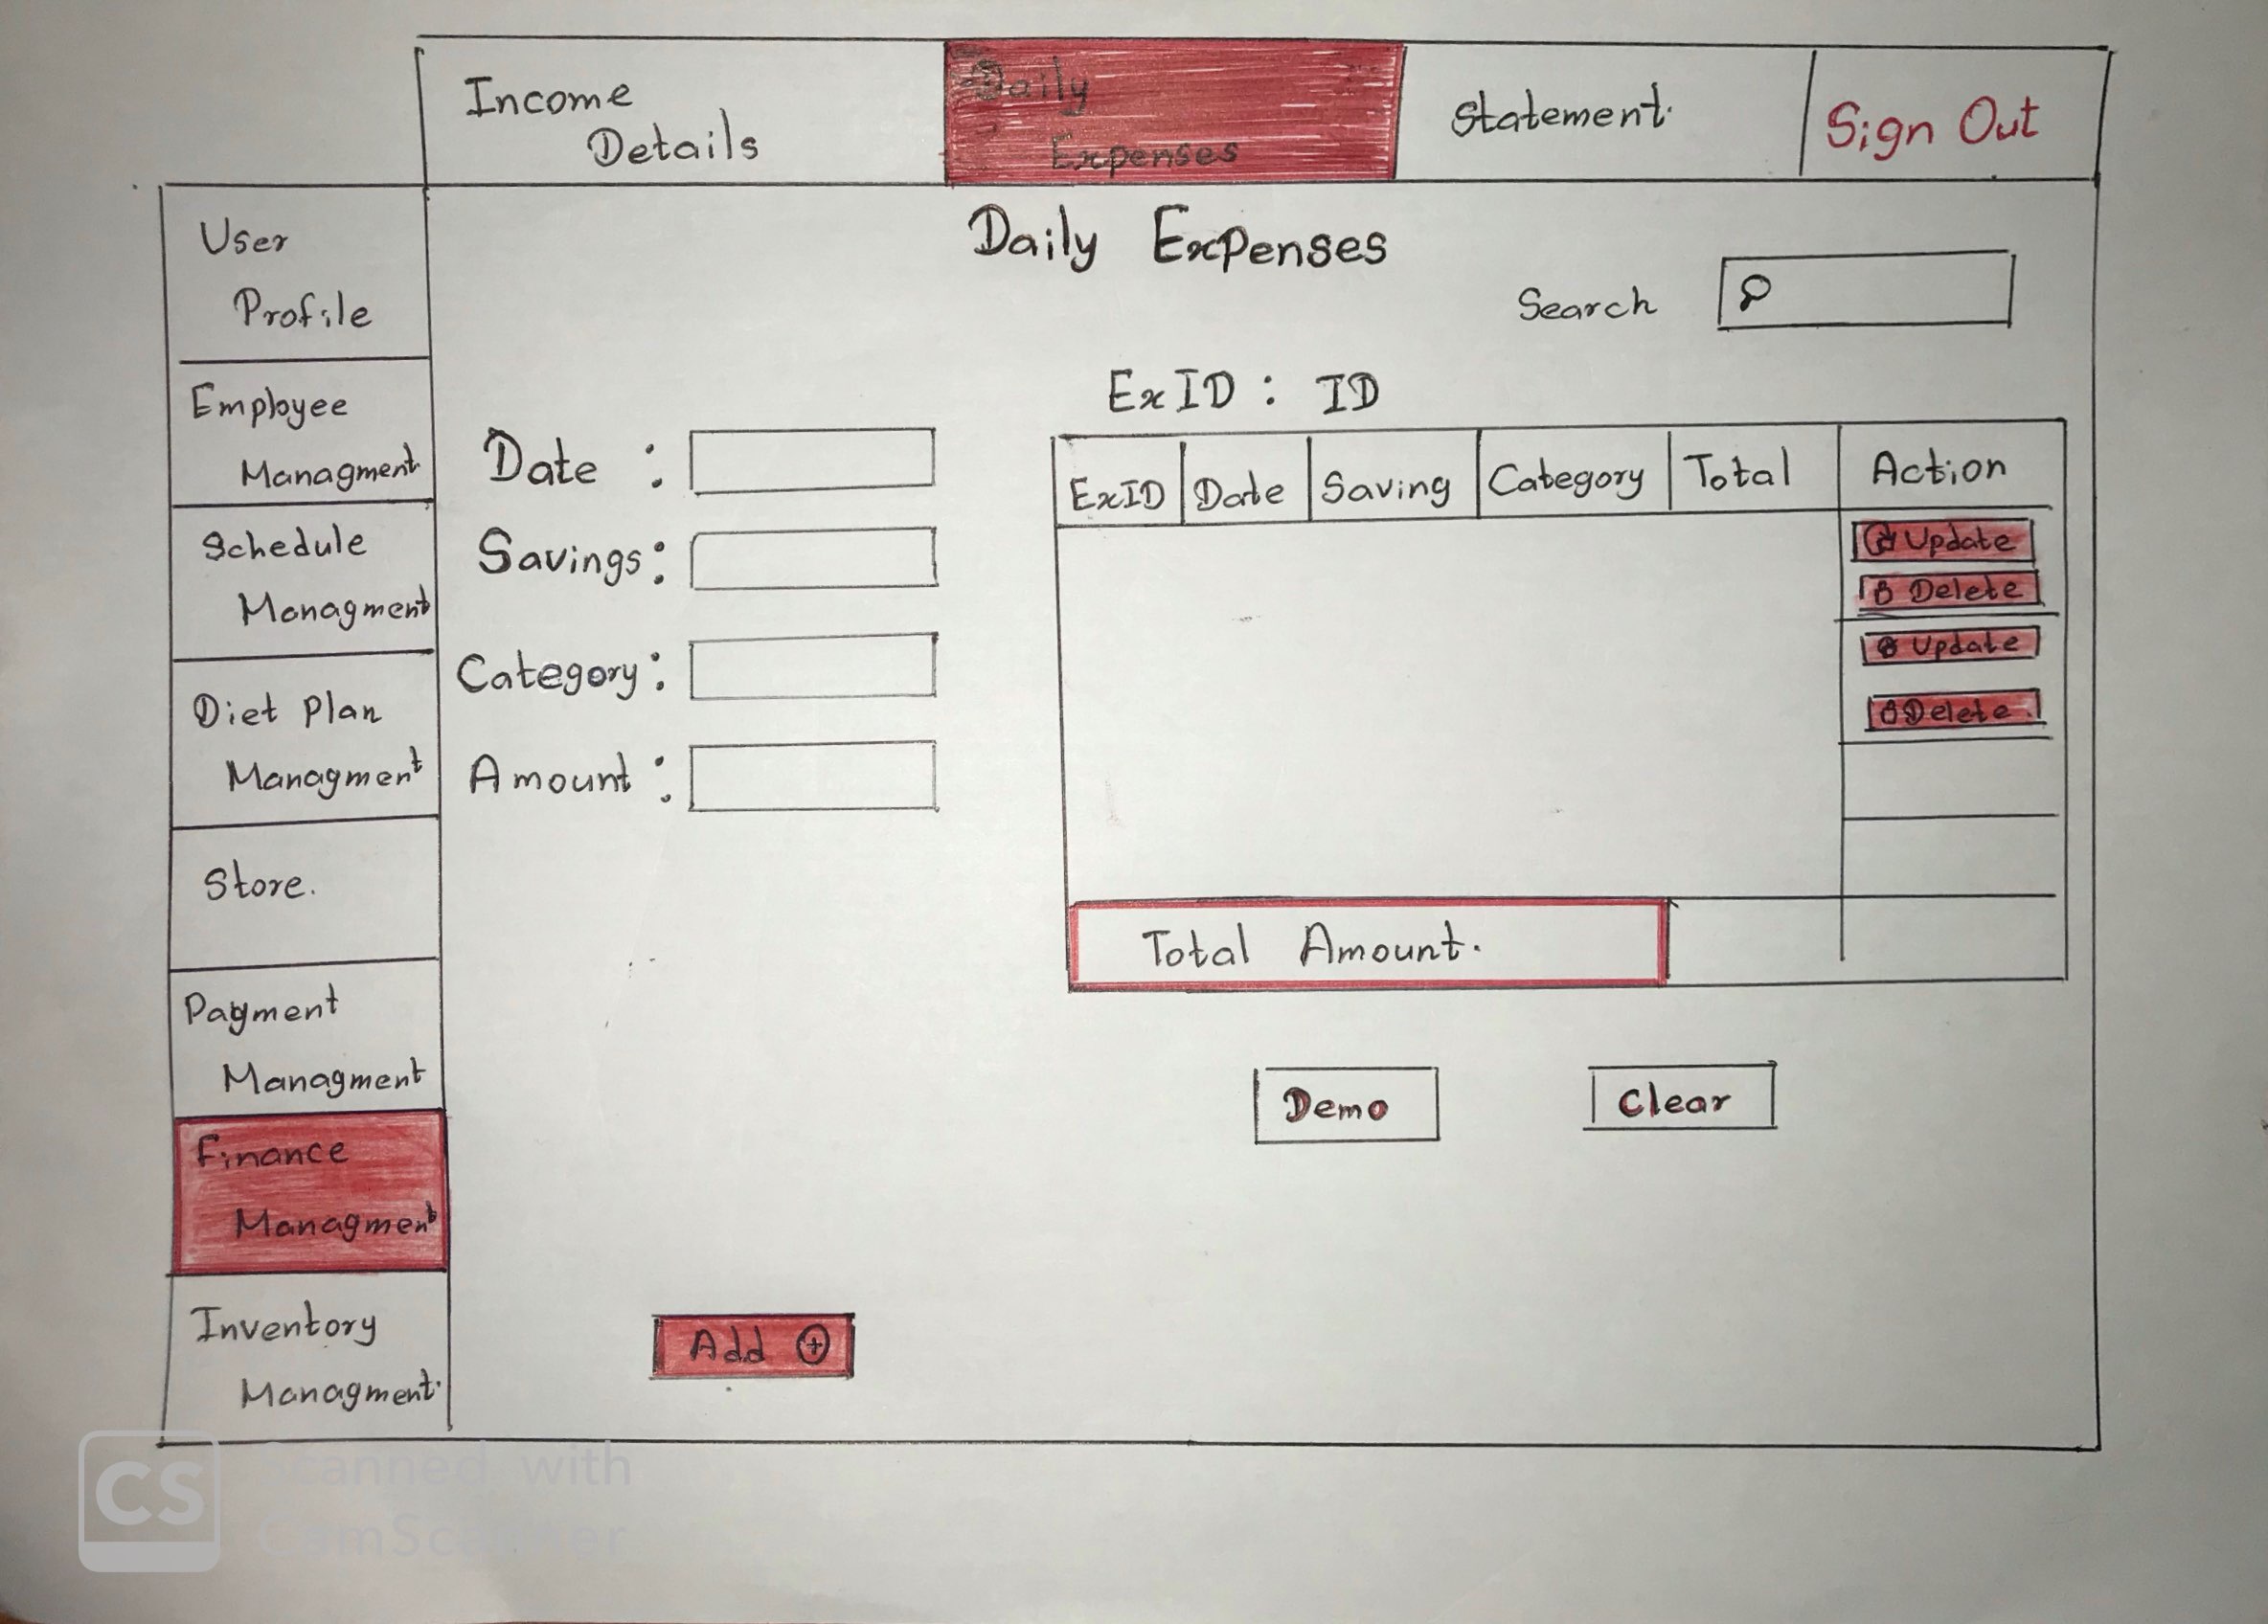 Income
Details
Daily
Expenses
Statement.
Sign Out
User
Profile
Employee
Managment
Schedule
Managment
Diet Plan
Managment
Store.
Payment
Managment
Finance
Managment
Inventory
Managment.
Daily Expenses
Search
ExID : ID
Date :
Savings :
Category :
Amount :
ExID Date Saving Category Total Action
Update
Delete
Update
Delete.
Total Amount.
Demo
Clear
Add
CS
Scanned with
CamScanner